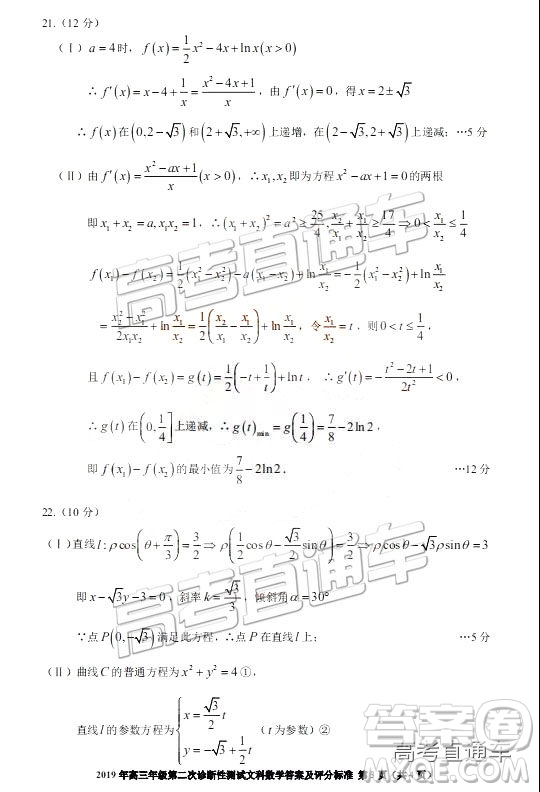 21.(12 分)
(Ⅰ) a = 4 时, f(x) = 1/2 x² − 4x + ln x (x > 0)
∴ f′(x) = x − 4 + 1/x = (x² − 4x + 1)/x, 由 f′(x) = 0, 得 x = 2 ± √3
∴ f(x) 在 (0, 2 − √3) 和 (2 + √3, +∞) 上递增, 在 (2 − √3, 2 + √3) 上递减; …5 分
(Ⅱ) 由 f′(x) = (x² − ax + 1)/x (x > 0), ∴ x₁, x₂ 即为方程 x² − ax + 1 = 0 的两根
即 x₁ + x₂ = a, x₁x₂ = 1, ∴ (x₁ + x₂)² = a² ≥ 25/4, x₂/x₁ + x₁/x₂ ≥ 17/4 ⇒ 0 < x₁/x₂ ≤ 1/4
f(x₁) − f(x₂) = 1/2 (x₁² − x₂²) − a(x₁ − x₂) + ln x₁/x₂ = −1/2 (x₁² − x₂²) + ln x₁/x₂
= (x₂² − x₁²)/(2x₁x₂) + ln x₁/x₂ = 1/2 (x₂/x₁ − x₁/x₂) + ln x₁/x₂, 令 x₁/x₂ = t, 则 0 < t ≤ 1/4,
且 f(x₁) − f(x₂) = g(t) = 1/2 (−t + 1/t) + ln t, ∴ g′(t) = −(t² − 2t + 1)/(2t²) < 0,
∴ g(t) 在 (0, 1/4] 上递减, ∴ g(t)min = g(1/4) = 7/8 − 2ln 2,
即 f(x₁) − f(x₂) 的最小值为 7/8 − 2ln2. …12 分
22.(10 分)
(Ⅰ) 直线 l : ρcos(θ + π/3) = 3/2 ⇒ ρ(1/2 cosθ − √3/2 sinθ) = 3/2 ⇒ ρcosθ − √3ρsinθ = 3
即 x − √3y − 3 = 0, 斜率 k = √3/3, 倾斜角 α = 30°
∵点 P(0, −√3) 满足此方程, ∴点 P 在直线 l 上; …5 分
(Ⅱ) 曲线 C 的普通方程为 x² + y² = 4 ①,
直线 l 的参数方程为 { x = √3/2 t
y = −√3 + 1/2 t (t 为参数)②
2019 年高三年级第二次诊断性测试文科数学答案及评分标准 第 页(共 页)
高考直通车
高考直通车
高考直通车